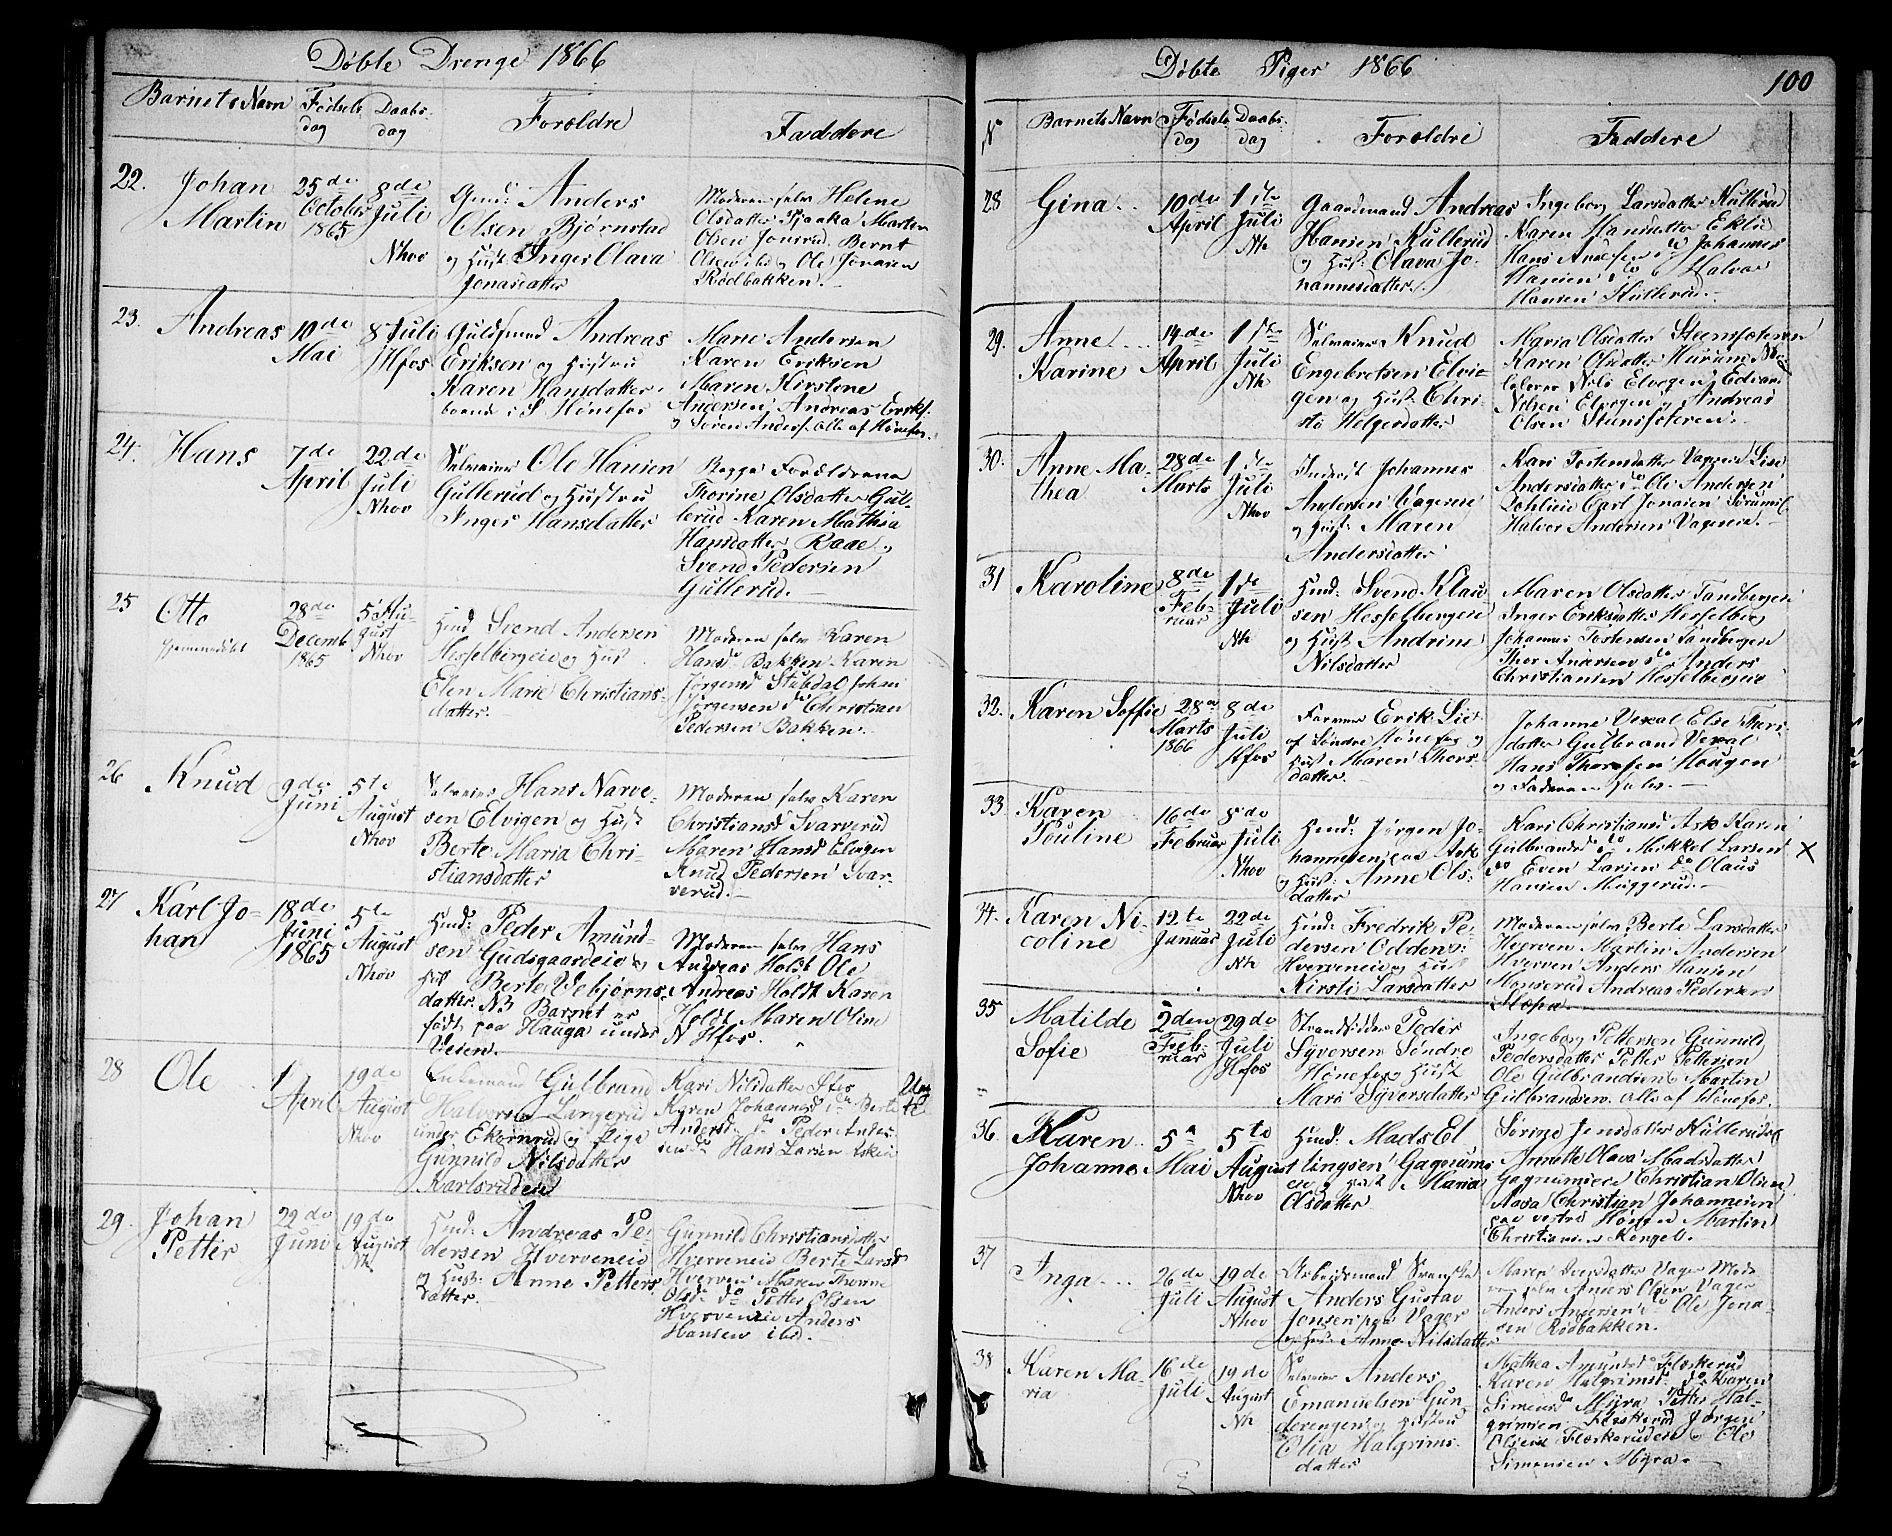 Døbte Drenge 1866
Barnets Navn
Fødsels
dag
Daabs
dag
Forældre
Faddere
22.
Johan
Martin
25de
October
1865
8de
Juli
Nhov
Anders
Olsen Bjørnstad
og Hust: Inger Olava
Jonasdatter
Moderen selv Helene
Olsdatter Tjaaka Marten
Olsen Jonsrud Bernt
Olsen ibd og Ole Jonasen
Rødbakken.
23.
Andreas
10de
Mai
8 Juli
Hfos
Guldsmed Andreas
Eriksen og Hustru
Karen Hansdatter
boende i S Hønefos
Marie Andersen
Karen Eriksen
Maren Kirstine
Andersen Andreas Eriks:
og Søren Anders. Alle af Hønefos.
24.
Hans
7de
April
22de
Juli
Nhov
Selveier Ole Hansen
Gullerud og Hustru
Inger Hansdatter
Begge Forældrene
Thorine Olsdatter Gul-
lerud Karen Mathia
Hansdatter Raae og
Svend Pedersen
Gullerud.
25
Otto
hjemmedøbt
28de
Decemb
1865
5 Au-
gust
Nhov
Husd Svend Andersen
Hesselbergeie og Hust
Elen Marie Christians-
datter.
Moderen selv Karen
Hansd Bakken Karen
Jørgensd Stubdal Johan
Jørgensen do Christian
Pedersen Bakken.
26
Knud
9de
Juni
5te
August
Nhov
Selveier Hans Narve-
sen Elvigen og Hust
Berte Maria Chri-
stiansdatter
Moderen selv Karen
Christiansd Svarverud
Maren Hansd Elvigen
Knud Pedersen Svar-
verud.
27
Karl Jo-
han
18de
Juni
1865
5te
August
Nhov
Husd: Peder Amund-
sen Gudsgaardeie og
Hust Berte Vebjørns-
datter. NB Barnet er
født paa Hauga under
Veien.
Moderen selv Hans
Andreas Holdt Ole
Andreas Holdt Karen
Holdt Maren Oline
N Hfos.
28
Ole
1
April
19de
August
Nhov
Enkemand Gulbrand
Halvorsen Langerud
under Ekornrud og Pige
Gunnild Nilsdatter
Karlsrudeie
Kari Nilsdatter
Kyren Johannsd do Berte
Andersd do Peder Anders
sen do Hans Larsen Asken
29.
Johan
Petter
22de
Juni
19de
August
Nh.
Husd: Andreas Pe-
dersen Hverveneie
og Hust: Anne Petters
datter.
Gunnild Christiansdatter
Hverveneie Berte Larsd
Hverven Maren Thorine
Olsd do Petter Olsen
Hverveneie Anders
Hansen ibd.
Døbte Piger 1866
100
N
Barnets Navn
Fødsels
dag
Daabs
dag
Forældre
Faddere
28
Gina
10de
April
1ste
Juli
Nh
Gaardmand Andreas
Hansen Kullerud
og Hust: Olava Jo-
hannesdatter.
Ingeborg Larsdatter Kullerud
Karen Hansdatter Eklie
Hans Andersen do Johannes
Hansen do Halvor
Hansen Kullerud.
29.
Anne
Karine
14de
April
1ste
Juli
Nh
Selveier Knud
Engebretsen Elvi-
gen og Hust Chri-
sti Helgesdatter
Maria Olsdatter
Karen Olsdatter Hurum
Nils Elvegen Edvart
Nilsen Elvegen og Andreas
Olsen
30.
Anne Ma-
thea
28de
Marts
1ste
Juli
Nhov
Inderst Johannes
Andersen Vagereie
og Hust: Maren
Andersdatter
Kari Tostensdatter Vagereie Lise
Andersdatter do Ole Andersen
Carl Jonasen
Halvor Andersen Vagereie.
31
Karoline
8de
Feb-
ruar
1ste
Juli
Nh
Husd: Svend Klau
sen Hesselbergeie
og Hust Andrine
Nilsdatter
Maren Olsdatter Tandbergeie
Inger Eriksdatter Hesselberg
Johannes Tostensen Tandbergeie
Thor Andersen do Anders
Christiansen Hesselbergeie
32.
Karen Soffie
28de
Marts
1866
8de
Juli
Hfos
Farver Erik Lie
af Søndre Hønefos og
Hust Maren Thors-
datter
Johanne Vexal Else Thors-
datter Gulbrand Vexal
Hans Thoresen Haugen
og Faderen selv.
33
Karen
Pouline
16de
Februar
8de
Juli
Nhov
Husd: Jørgen Jo-
hannesen paa Ask
og Hust: Anne Ols-
datter
Kari Christiansd Ask Karen
Gulbrandsd do Mikkel Larsen
do Even Larsen do Olaus
Hansen Muggerud.
X
34.
Karen Ni-
coline
12te
Januar
22de
Juli
Nh
Husd: Fredrik Pe-
dersen Odden
Hverveneie og Hust
Kirsti Larsdatter
Moderen selv Berte Larsdatter
Hverven Martin Andersen
Hverven Anders Hansen
Monserud Andreas Pedersen
35
Matilde
Sofie
2den
Feb-
ruar
29de
Juli
Hfos
Strandsidder Peder
Syversen Søndre
Hønefos og Hust
Mari Syversdatter
Ingeborg Pettersen Gunnild
Pedersdatter Petter Pettersen
Ole Gulbrandsen Martin
Gulbrandsen. Alle af Hønefos.
36.
Karen
Johanne
5te
Mai
5te
August
Nhov
Husd: Mads El
lingsen Gagnums
eie og Hust Maria
Olsdatter
Sørine Jensdatter Kullerudeie
Annette Olava Madsdatter
Gagnumseie Christian Olsen
Aasa Christian Johannesen
paa vestre Hønen Martin
Christiansen Rengel.
37
Inga
26de
Juli
19de
August
Nhov
Arbeidsmand Svenske
Anders Gustav
Jonsen paa Vager
og Hust: Anne Nilsdatter
Maren Vager Mode
ren selv Anders Olsen Vager
Anders Andersen do Ole Jona-
sen Rødbakken.
38
Karen Ma-
ria
16de
Juli
19de
August
Nh
Selveier Anders
Emanuelsen Gun-
derengen og Hustru
Olia Halgrims-
datter
Mathea Amundsd Flaskerud
Karen Halgrimsd do Karen
Simensd Myra Petter Hal-
grimsen Flaskerud Jørgen
Olsen Flaskerudeie Ole
Simensen Myra.